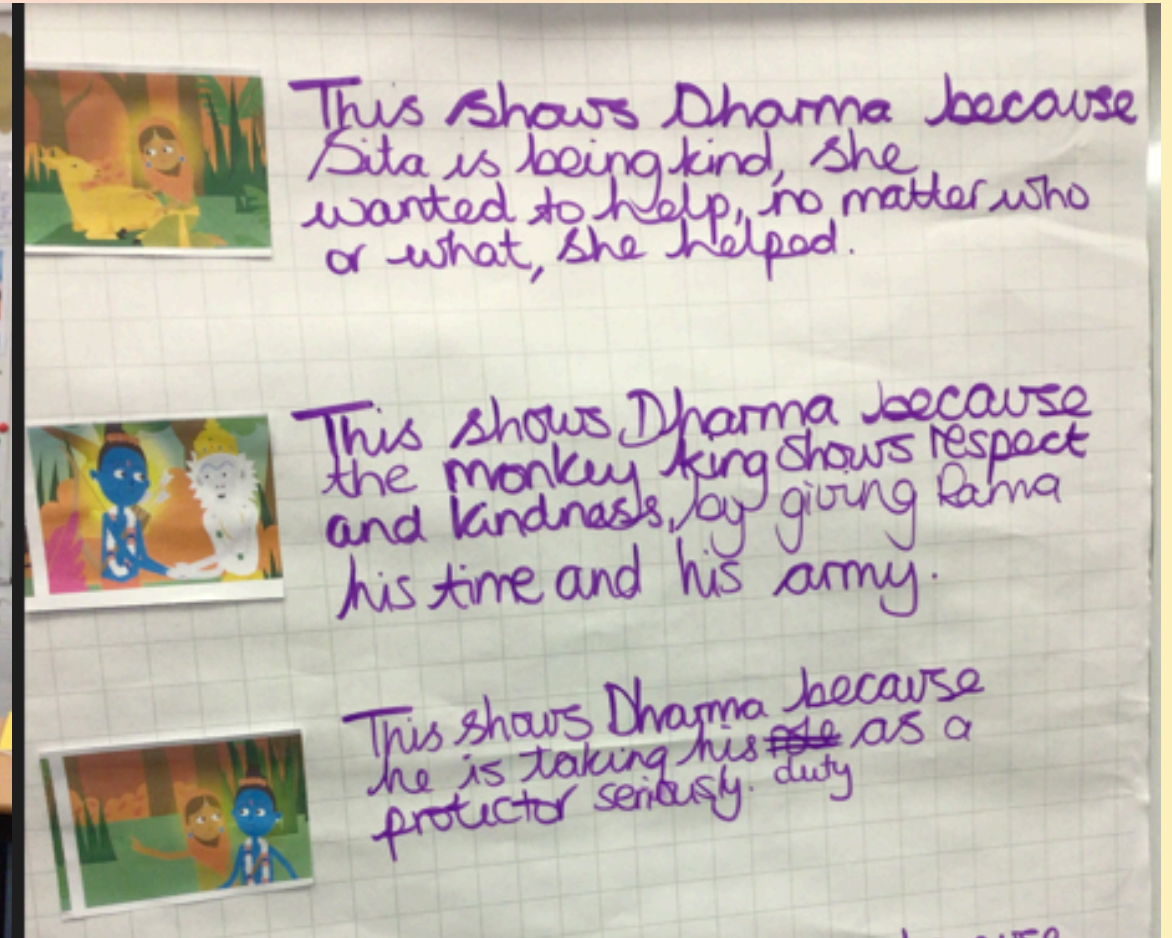 This shows Dharma because
Sita is being kind, she
wanted to help, no matter who
or what, she helped.
This shows Dharma because
the monkey king shows respect
and kindness, by giving Rama
his time and his army.
This shows Dharma because
he is taking his role as a
duty
protector seriously.
because